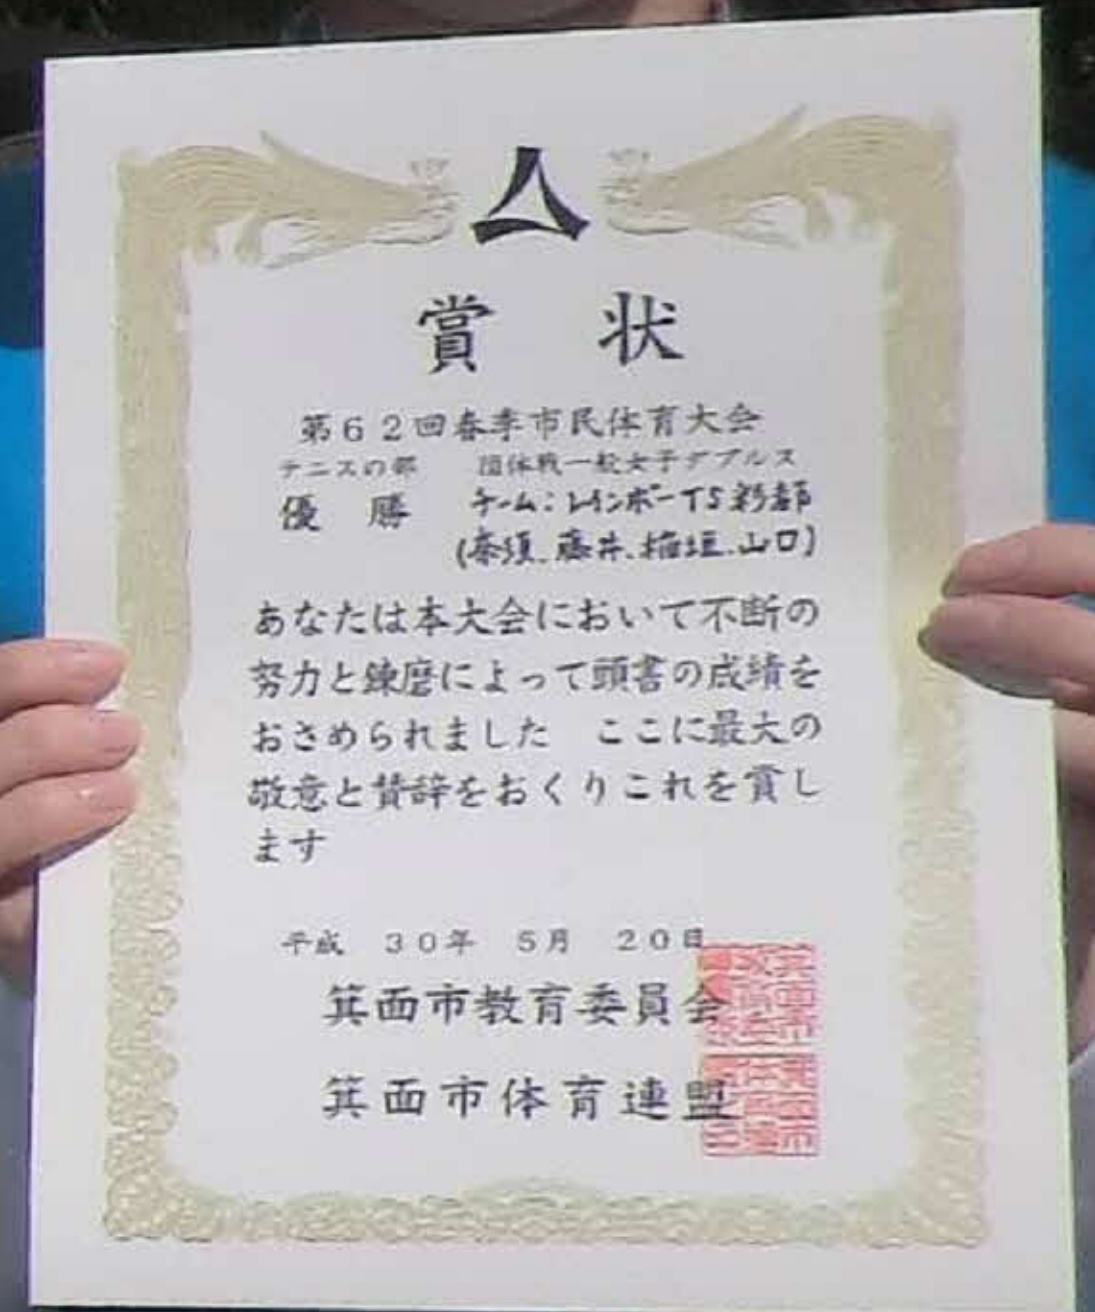 賞 状
第62回春季市民体育大会
テニスの部 団体戦一般女子ダブルス
優 勝 チーム:レインボーTS彩都
(奈須、藤井、稲垣、山口)
あなたは本大会において不断の
努力と錬磨によって頭書の成績を
おさめられました ここに最大の
敬意と賛辞をおくりこれを賞し
ます
平成 30年 5月 20日
箕面市教育委員会
箕面市体育連盟